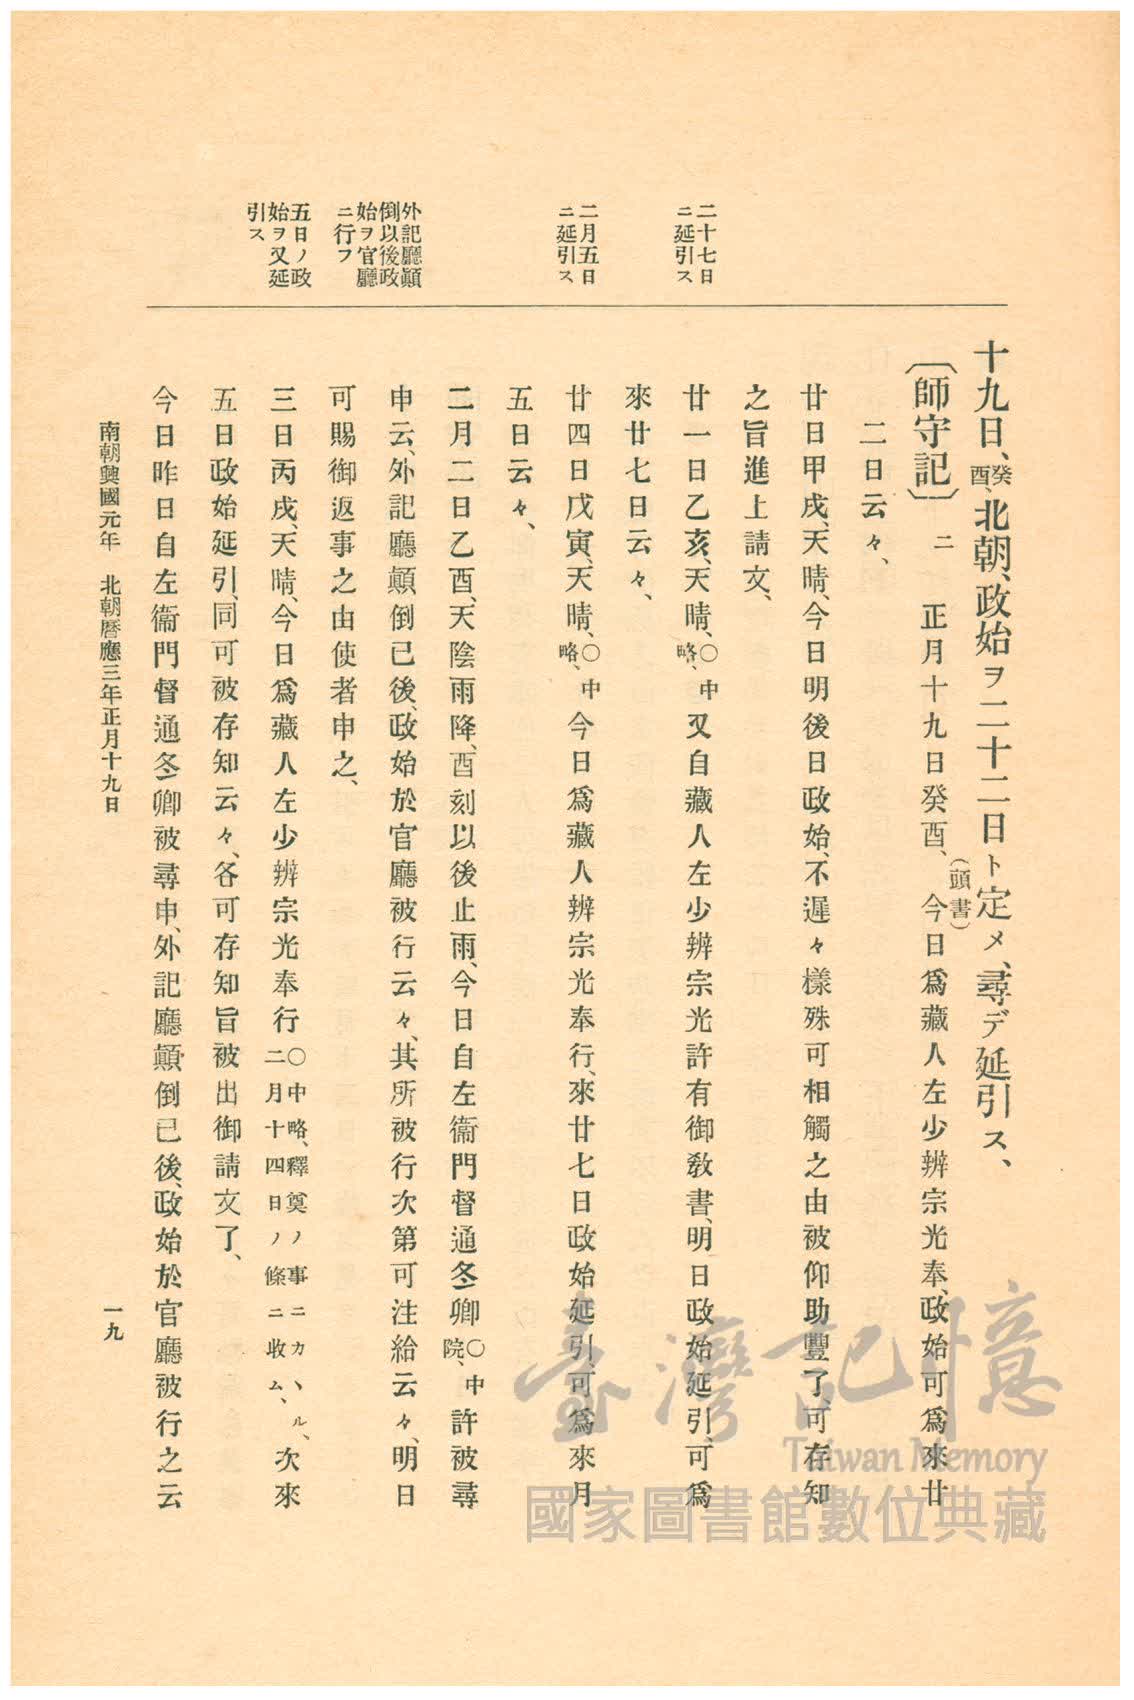 二十七日
ニ延引ス
二月五日
ニ延引ス
外記廳顚
倒以後政
始ヲ官廳
ニ行フ
五日ノ政
始ヲ又延
引ス
十九日、癸酉、北朝、政始ヲ二十二日ト定メ、尋デ延引ス、
〔師守記〕 二 正月十九日癸酉、(頭書)今日爲藏人左少辨宗光奉、政始可爲來廿
二日云々、
廿日甲戌、天晴、今日明後日政始、不遲々樣殊可相觸之由被仰助豐了、可存知
之旨進上請文、
廿一日乙亥、天晴、○中略、又自藏人左少辨宗光許有御敎書、明日政始延引、可爲
來廿七日云々、
廿四日戊寅、天晴、○中略、今日爲藏人辨宗光奉行、來廿七日政始延引、可爲來月
五日云々、
二月二日乙酉、天陰雨降、酉刻以後止雨、今日自左衞門督通冬卿○中院、許被尋
申云、外記廳顚倒已後、政始於官廳被行云々、其所被行次第可注給云々、明日
可賜御返事之由使者申之、
三日丙戌、天晴、今日爲藏人左少辨宗光奉行○中略、釋奠ノ事ニカヽル、二月十四日ノ條ニ收ム、次來
五日政始延引、同可被存知云々、各可存知旨被出御請文了、
今日昨日自左衞門督通冬卿被尋申、外記廳顚倒已後、政始於官廳被行之云
南朝興國元年 北朝曆應三年正月十九日
一九
臺灣記憶
Taiwan Memory
國家圖書館數位典藏